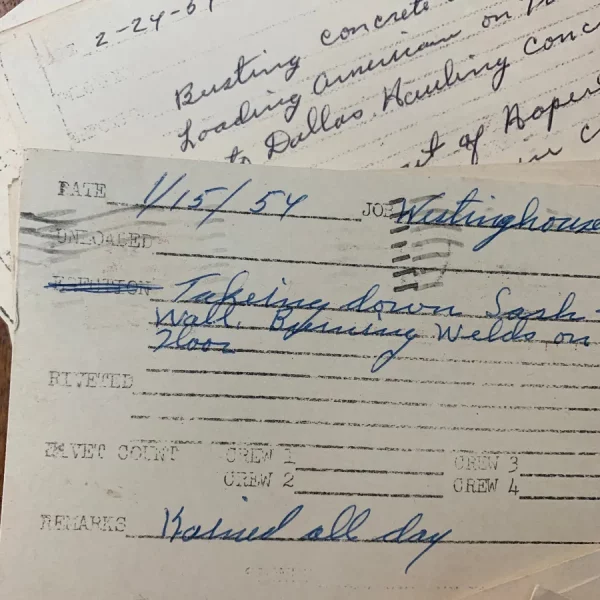 2-24-5
Busting concrete
Loading American on
to Dallas Hauling Conc
of
DATE 1/15/54 JOB Westinghouse
UNLOADED
ERECTION Takeing down Sash
Wall. Burning Welds on
Floor
RIVETED
RIVET COUNT CREW 1 CREW 3
CREW 2 CREW 4
REMARKS Rained all day